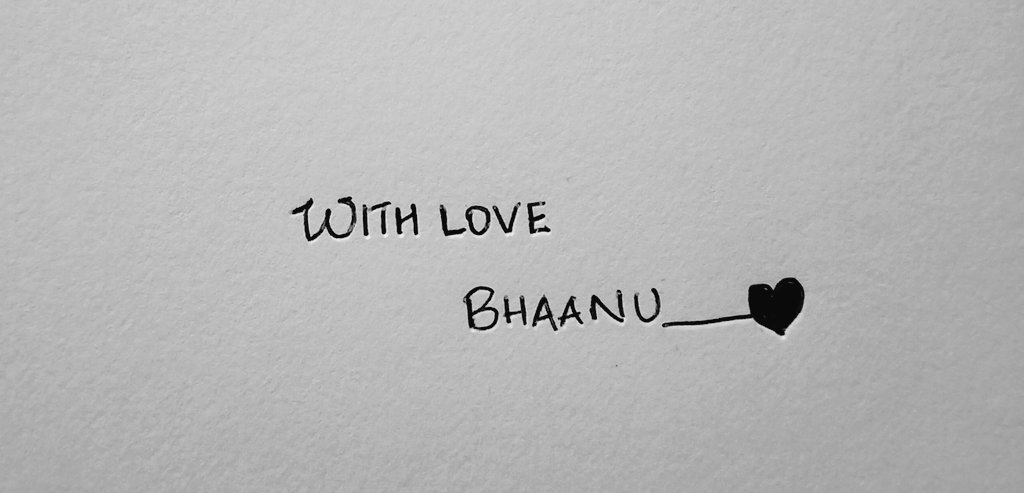 WITH LOVE
BHAANU__♥